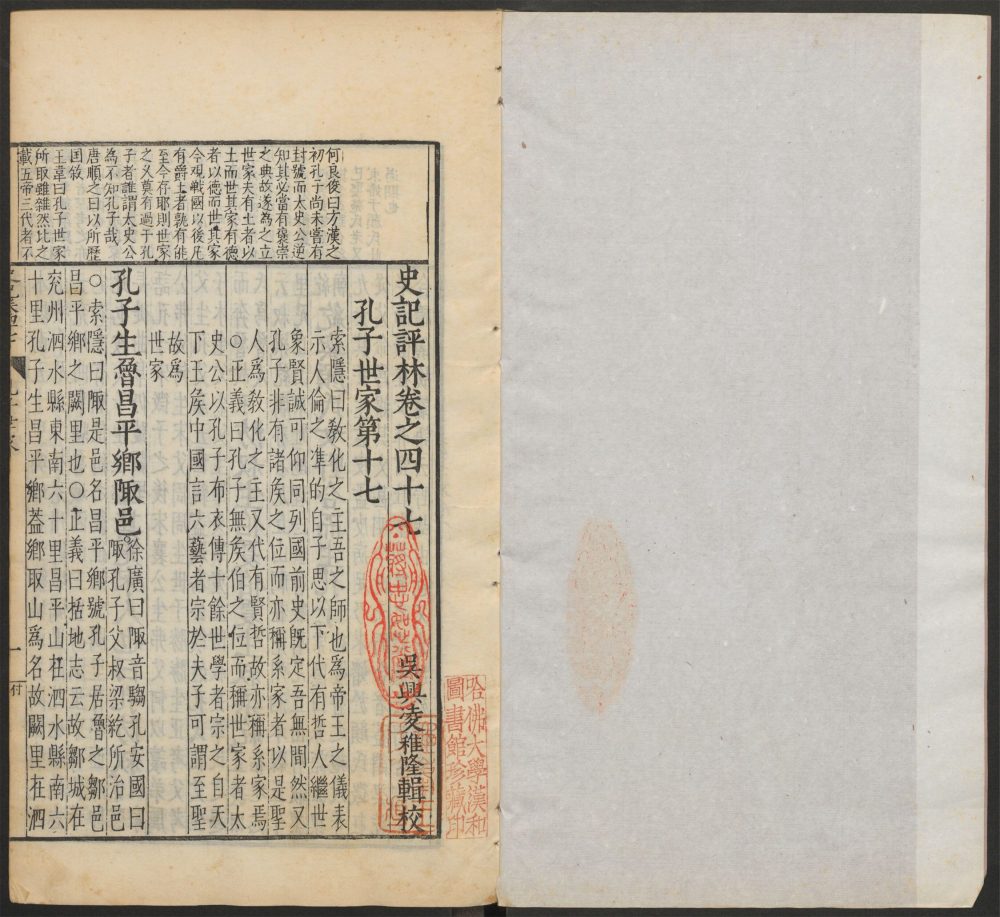 史記評林卷之四十七
吳興凌稚隆輯校
孔子世家第十七
索隱曰敎化之主吾之師也爲帝王之儀表
示人倫之準的自子思以下代有哲人繼世
象賢誠可仰同列國前史旣定吾無間然又
孔子非有諸矦之位而亦稱系家者以是聖
人爲敎化之主又代有賢哲故亦稱系家焉
○正義曰孔子無矦伯之位而稱世家者太
史公以孔子布衣傳十餘世學者宗之自天
下王矦中國言六藝者宗於夫子可謂至聖
故爲
世家
孔子生魯昌平鄉陬邑
徐廣曰陬音騶孔安國曰
陬孔子父叔梁紇所治邑
○索隱曰陬是邑名昌平鄉號孔子居魯之鄒邑
昌平鄉之闕里也○正義曰括地志云故鄒城在
兖州泗水縣東南六十里昌平山在泗水縣南六
十里孔子生昌平鄉葢鄉取山爲名故闕里在泗
何良俊曰方漢之
初孔子尚未嘗有
封號而太史公逆
知其必當有褒崇
之典故遂為之立
世家夫有土者以
土而世其家有德
者以德而世其家
今觀戰國以後凡
有爵土者孰有能
至今存耶則世家
之久莫有過于孔
子者誰謂太史公
為不知孔子哉
唐順之曰以所歷
国敘
王韋曰孔子世家
所取雖雜然比之
載五帝三代者不
哈佛大學漢和
圖書館珍藏印
一